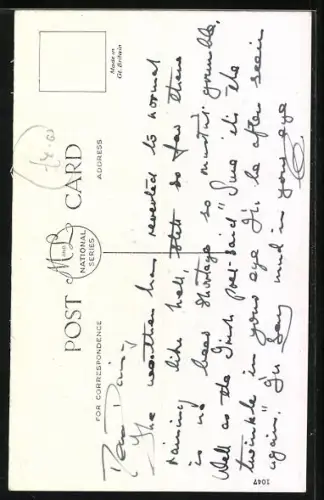 POST CARD
M & L
NATIONAL
SERIES
Made in
Gt. Britain
FOR CORRESPONDENCE
ADDRESS
£4.00
Dear
The weather has reverted to normal
raining like hell, still so far there
is no beer shortage so mustn't grumble,
Well as the Irish poet said "Sure it's the
twinkle in your eye I'll be after seein
again." I'll say mud in your eye
1047